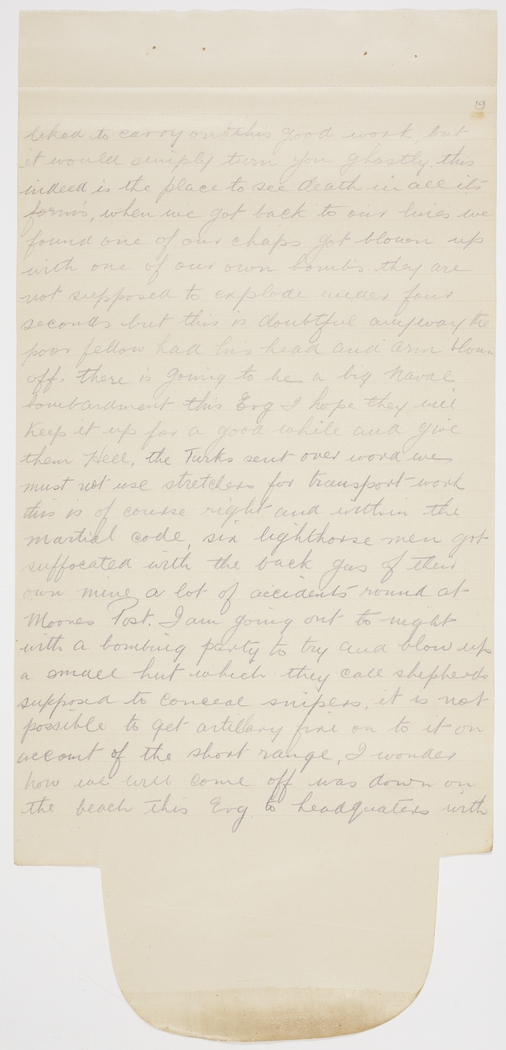 19
liked to carry on this good work, but
it would simply turn you ghastly, this
indeed is the place to see death in all its
forms, when we got back to our lines we
found one of our chaps got blown up
with one of our own bombs they are
not supposed to explode under four
seconds but this is doubtful anyway the
poor fellow had his head and arm blown
off, there is going to be a big Naval
bombardment this Evg I hope they will
Keep it up for a good while and give
them Hell, the Turks sent over word we
must not use stretchers for transport work
this is of course right and within the
martial code, six lighthorse men got
suffocated with the back gas of their
own mine a lot of accidents round at
Moores Post. I am going out to night
with a bombing party to try and blow up
a small hut which they call shepherds
supposed to conceal snipers, it is not
possible to get artillary fire on to it on
account of the short range, I wonder
how we will come off was down on
the beach this Evg to headquaters with